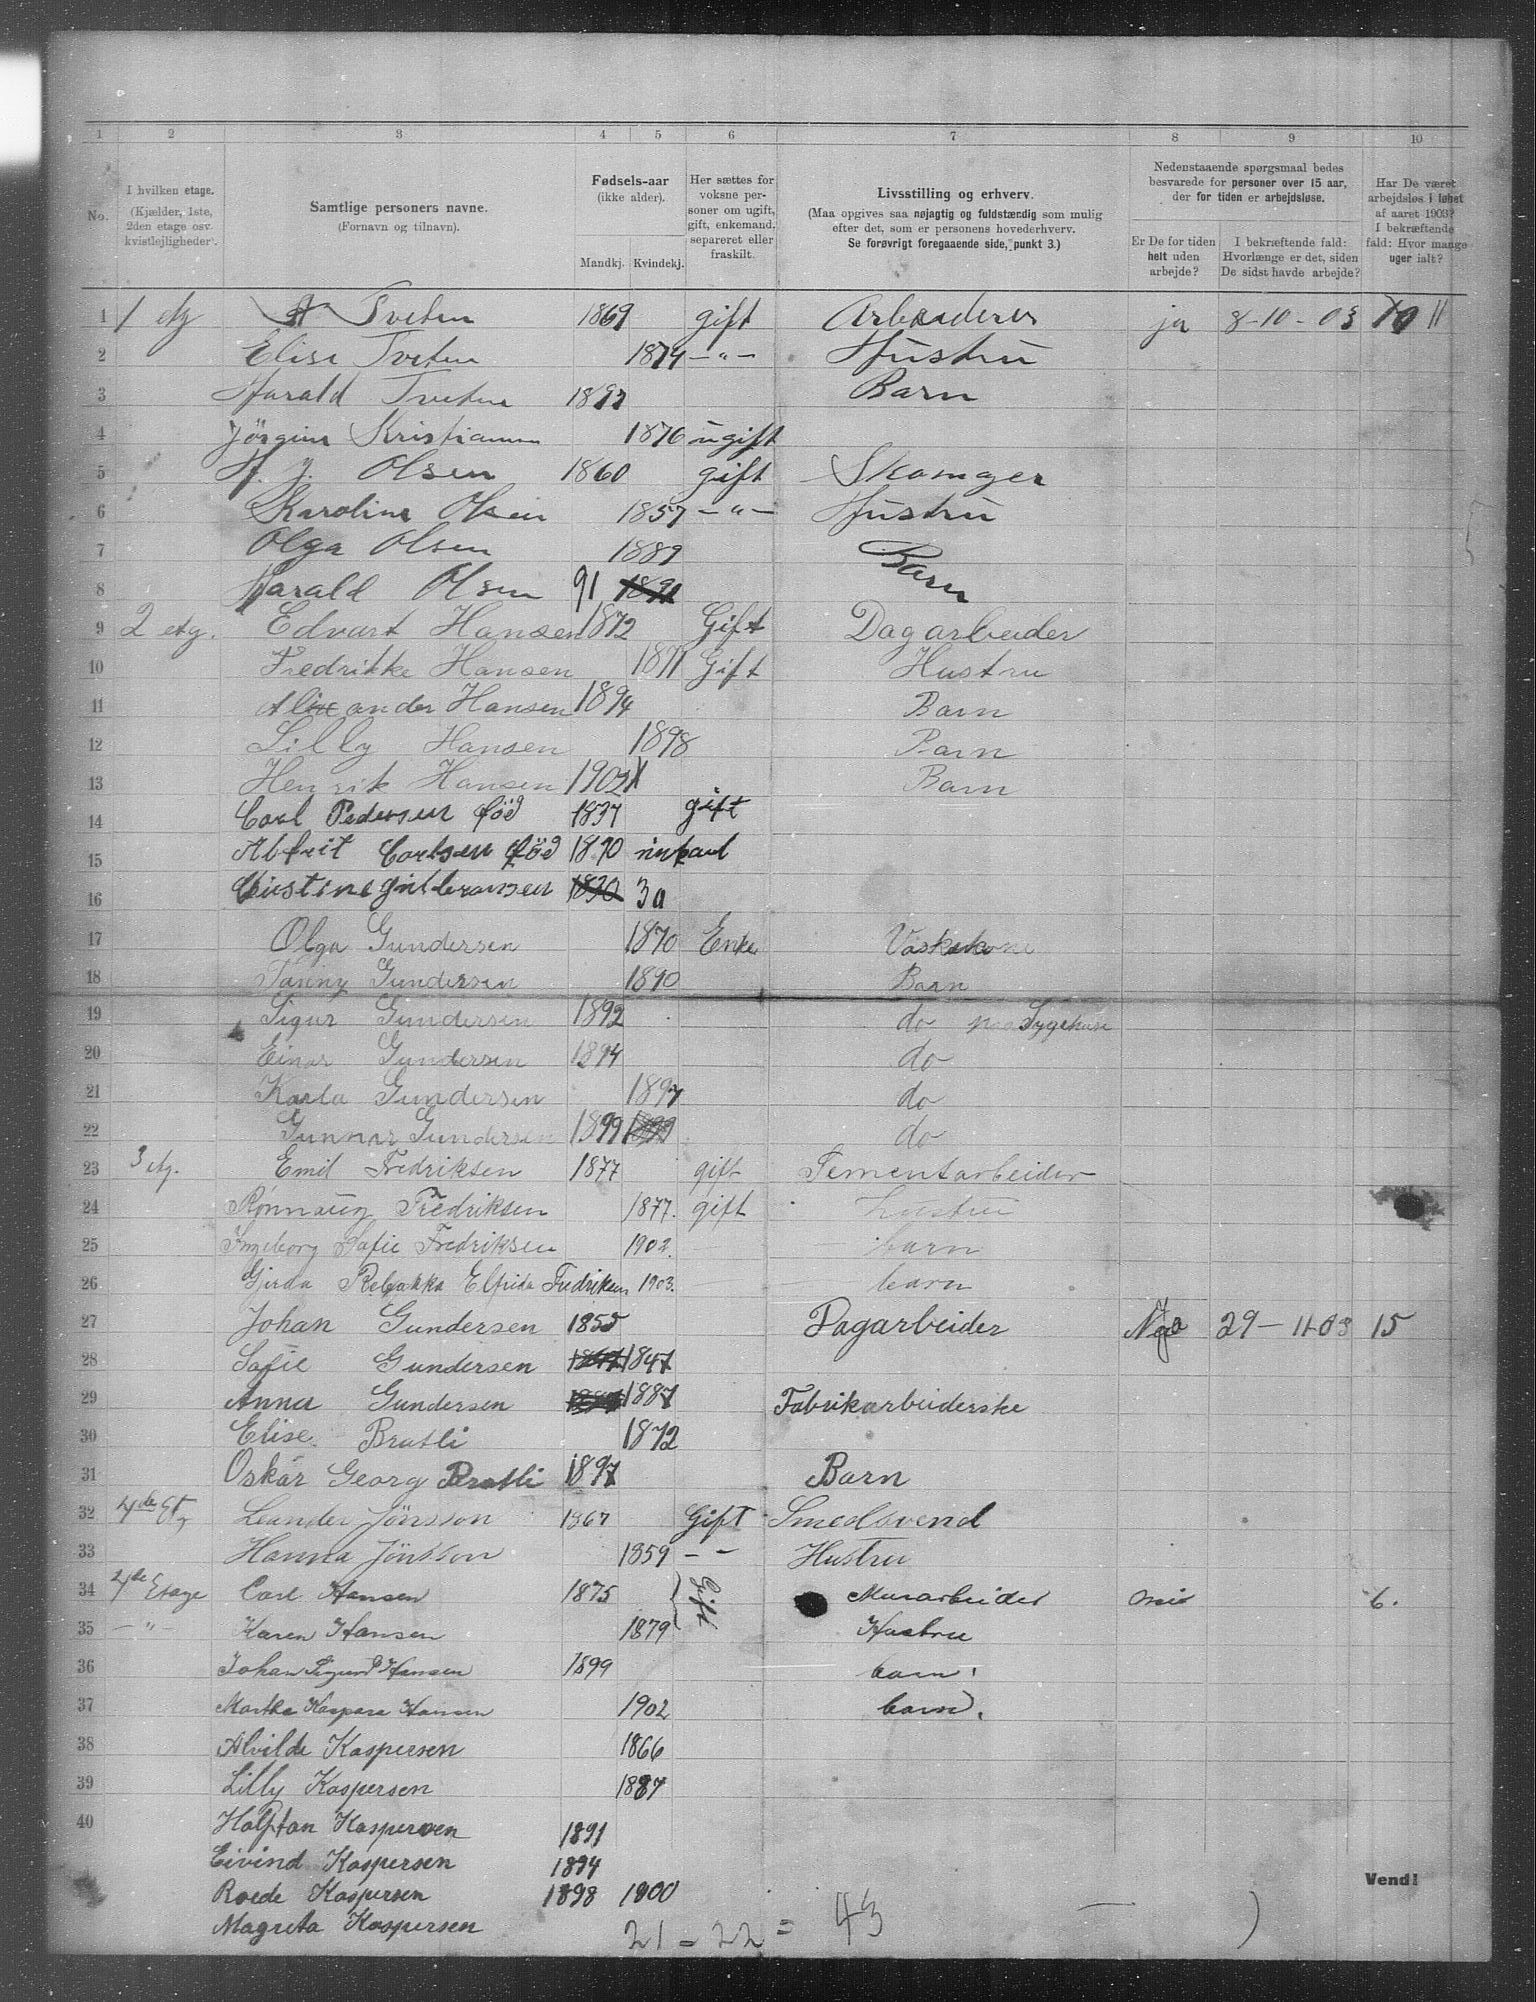 1 2 3 4 5 6 7 8 9 10
No.
I hvilken etage.
(Kjælder, 1ste, 2den etage osv. kvistlejligheder).
Samtlige personers navne.
(Fornavn og tilnavn).
Fødsels-aar
(ikke alder).
Mandkj. Kvindekj.
Her sættes for voksne personer om ugift, gift, enkemand, separeret eller fraskilt.
Livsstilling og erhverv.
(Maa opgives saa nøjagtig og fuldstændig som mulig efter det, som er personens hovederhverv.
Se forøvrigt foregaaende side, punkt 3.)
Nedenstaaende spørgsmaal bedes besvarede for personer over 15 aar, der for tiden er arbejdsløse.
Er De for tiden helt uden arbejde?
I bekræftende fald: Hvorlænge er det, siden De sidst havde arbejde?
Har De været arbejdsløs i løbet af aaret 1903? I bekræftende fald: Hvor mange uger ialt?
1 1 etg Tveten 1869 gift ja 8-10-03 11
2 Elise Tveten 1874 -"- Hustru
3 Harald Tveten 1897 Barn
4 Jörgine 1876 ugift
5 H. J. Olsen 1860 gift Skomager
6 Karoline Olsen 1857 -"- Hustru
7 Olga Olsen 1889
8 Harald Olsen 91 1891 Barn
9 2 etg. Edvart Hansen 1872 Gift Dagarbeider
10 Fredrikke Hansen 1871 Gift Hustru
11 Alixander Hansen 1894 Barn
12 Lilly Hansen 1898 Barn
13 Henrik Hansen 1902 Barn
14 Carl Pedersen föd 1837 gift
15 Carlsen föd 1870
16 1830 30
17 Olga Gundersen 1870 Enke Vaskekone
18 Fanny Gundersen 1890 Barn
19 Sigur Gundersen 1892 do paa Sygehuse
20 Einar Gundersen 1894 do
21 Karla Gundersen 1897 do
22 Gunnar Gundersen 1899 1899 do
23 3 etg. Emil Fredriksen 1877 gift Sementarbeider
24 Rønnaug Fredriksen 1877. gift hustru
25 Ingeborg Sofie Fredriksen 1902. barn
26 Gjerda Rebekka Elfrida Fredriksen 1903. barn
27 Johan Gundersen 1855 Dagarbeider 29-11-03 15
28 Sofie Gundersen 1847 1847
29 Anna Gundersen 1887 Fabrikarbeiderske
30 Elise Bratli 1872
31 Oskar Georg Bratli 1897 Barn
32 4de Etg Leander Jönsson 1867 Gift Smedsvend
33 Hanna Jönsson 1859 - - Hustru
34 4de Etage Carl Hansen 1875 Gift Murarbeider nei 6.
35 -"- Karen Hansen 1879 Hustru
36 Johan Sigurd Hansen 1899 barn.
37 Martha Kaspara Hansen 1902 barn.
38 Alvilde Kaspersen 1866
39 Lilly Kaspersen 1887
40 Halftan Kaspersen 1891
Eivind Kaspersen 1894
Roede Kaspersen 1898 1900
Magreta Kaspersen
Vend!
21 - 22 = 43